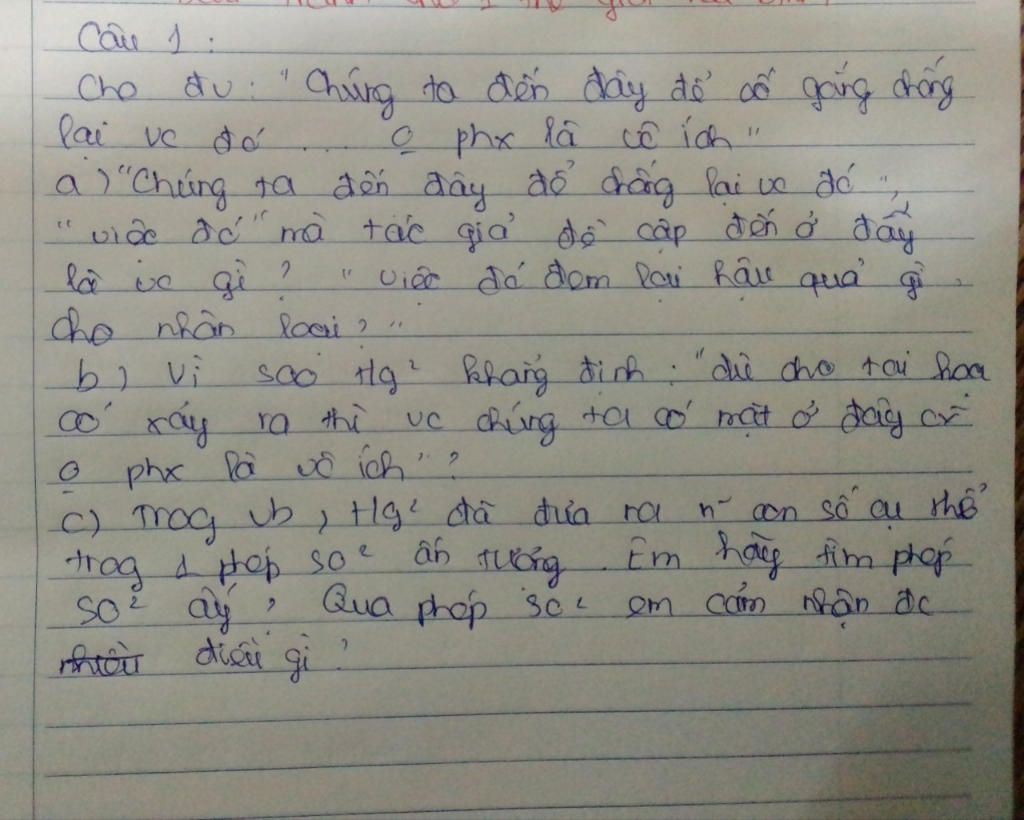 Câu 1 :
Cho đv : "Chúng ta đến đây để cố gắng chống
lại vc đó .... o phx là vô ích"
a) "Chúng ta đến đây để chống lại vc đó",
"việc đó" mà tác giả đề cập đến ở đây
là vc gì ? "việc đó đem lại hậu quả gì
cho nhân loại ? "
b) Vì sao t/g² khẳng định : "dù cho tai hoạ
có xảy ra thì vc chúng ta có mặt ở đây cx
o phx là vô ích" ?
c) Trog vb , t/g² đã đưa ra n~ con số cụ thể
trog 1 phép so² ấn tượng . Em hãy tìm phép
so² ấy , Qua phép so² em cảm nhận đc
điều gì ?